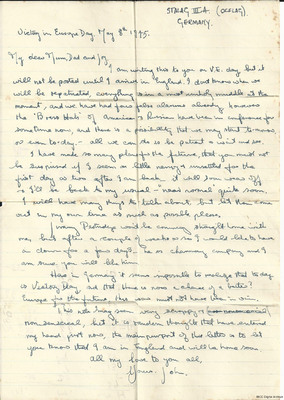 STALAG III A. (OFLAG).
GERMANY.
Victory in Europe Day May 8th 1945.
My dear Mum, Dad and Joy,
I am writing this to you on V.E. day but it
will not be posted until I arrive in England. I don't know when we
will be repatriated, everything is in a most unholy muddle at the
moment, and we have had four false alarms already however
the 'Brass Hats' of America & Russia have been in conference for
some time now, and there is a possibility that we may start to-morrow,
or even to-day - all we can do is be patient & wait and see.
I have made so many plans for the future, that you must not
be surprised if I seem a little dazed & unsettled for the
first day or two after I am back. it will soon wear off
& I'll be back to my usual - near normal quite soon.
I will have many things to talk about, but let them come
out in my own time as much as possible please.
will be coming straight home with
me, but after a couple of weeks or so I would like to have
him down for a few days, he is charming company and I
am sure you will like him.
Here in Germany it seems impossible to realise that to-day
is Victory Day, and that there is now a chance of a better
Europe for the future, this war must not have been in vain.
This note may seem very scrappy &
nonsensical, but it is random thoughts that have entered
my head just now, the main purport of this letter is to let
you know that I am in England and will be home soon.
All my love to you all,
Yours, John.